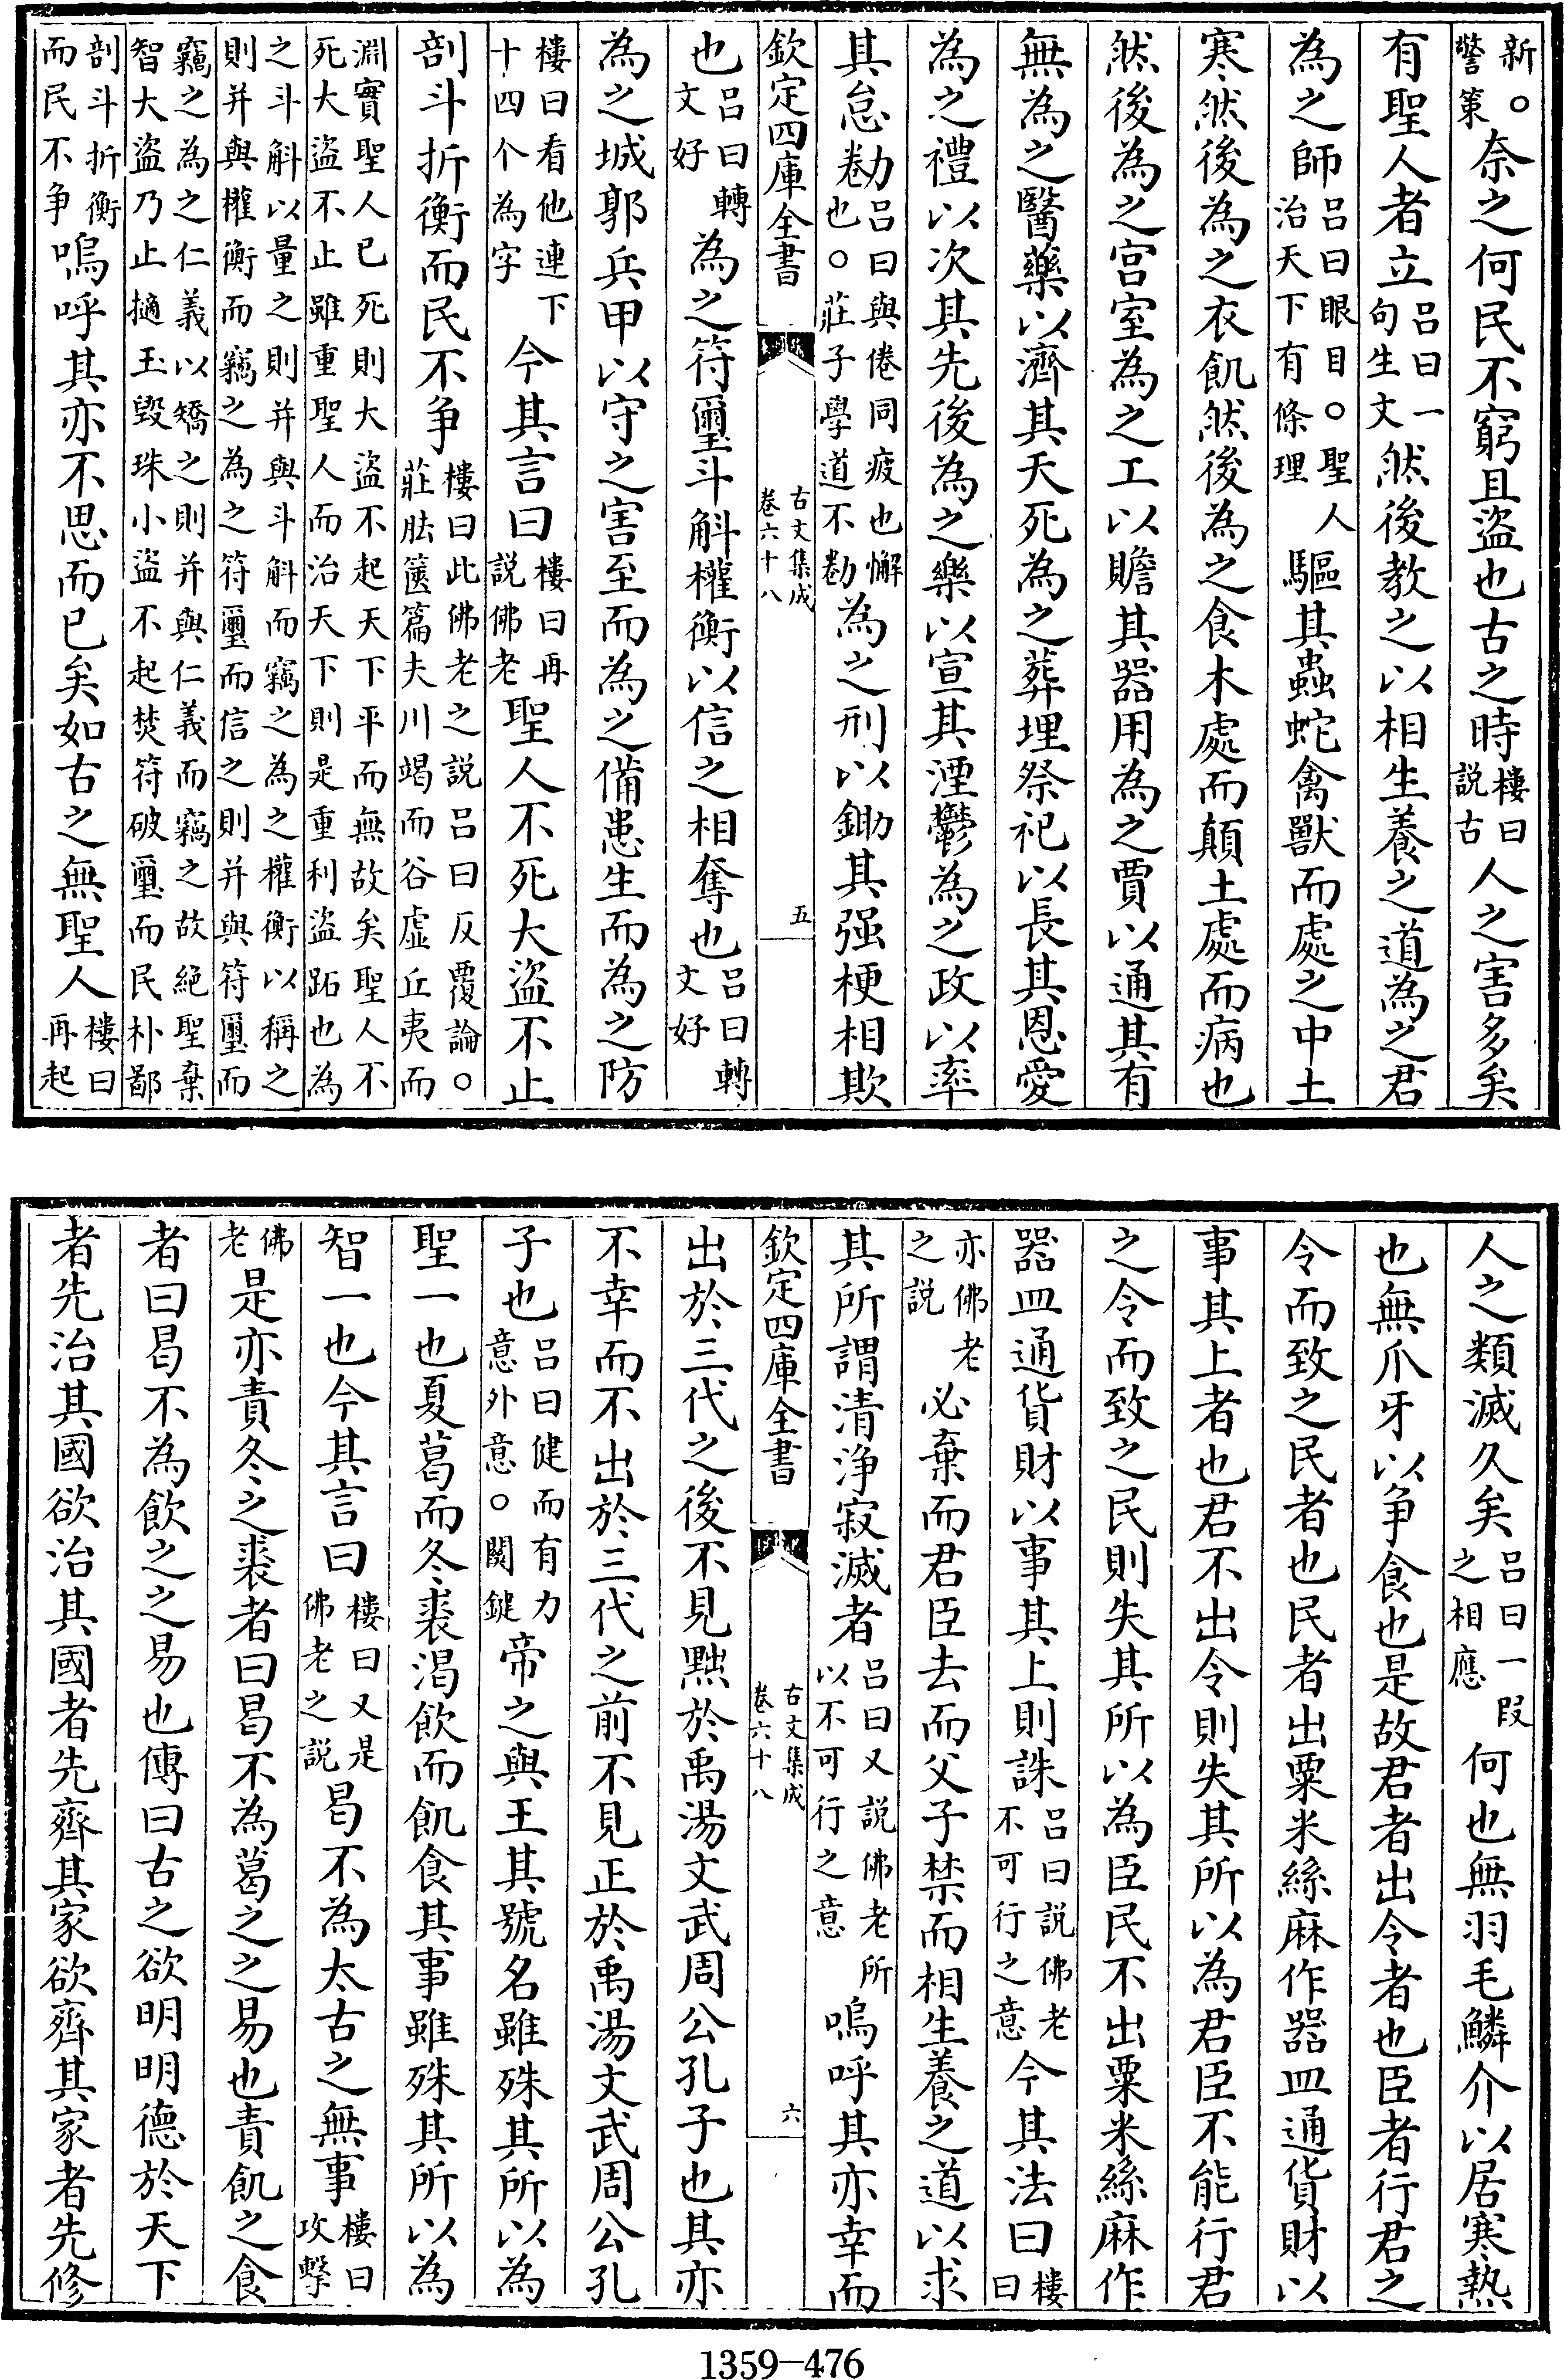 新○警策奈之何民不窮且盜也古之時樓曰説古人之害多矣
有聖人者立吕曰一句生文然後教之以相生養之道為之君
為之師吕曰眼目○聖人治天下有條理驅其蟲蛇禽獸而處之中土
寒然後為之衣飢然後為之食木處而顛土處而病也
然後為之宫室為之工以贍其器用為之賈以通其有
無為之醫藥以濟其夭死為之葬埋祭祀以長其恩愛
為之禮以次其先後為之樂以宣其湮鬱為之政以率
其怠勌吕曰與倦同疲也懈也○莊子學道不勌為之刑以鋤其强梗相欺
欽定四庫全書 古文集成卷六十八 五
也吕曰轉文好為之符璽斗斛權衡以信之相奪也吕曰轉文好
為之城郭兵甲以守之害至而為之備患生而為之防
樓曰看他連下十四个為字今其言曰樓曰再説佛老聖人不死大盜不止
剖斗折衡而民不争樓曰此佛老之説吕曰反覆論○莊胠篋篇夫川竭而谷虚丘夷而
淵實聖人已死則大盜不起天下平而無故矣聖人不死大盜不止雖重聖人而治天下則是重利盜跖也為
之斗斛以量之則并與斗斛而竊之為之權衡以稱之則并與權衡而竊之為之符璽而信之則并與符璽而
竊之為之仁義以矯之則并與仁義而竊之故絶聖棄智大盜乃止擿玉毁珠小盜不起焚符破璽而民朴鄙
剖斗折衡而民不争嗚呼其亦不思而已矣如古之無聖人樓曰再起
人之類滅久矣吕曰一段之相應何也無羽毛鱗介以居寒熱
也無爪牙以争食也是故君者出令者也臣者行君之
令而致之民者也民者出粟米絲麻作器皿通貨財以
事其上者也君不出令則失其所以為君臣不能行君
之令而致之民則失其所以為臣民不出粟米絲麻作
器皿通貨財以事其上則誅吕曰説佛老不可行之意今其法曰樓曰
亦佛老之説必棄而君臣去而父子禁而相生養之道以求
其所謂清浄寂滅者吕曰又説佛老所以不可行之意嗚呼其亦幸而
欽定四庫全書 古文集成卷六十八 六
出於三代之後不見黜於禹湯文武周公孔子也其亦
不幸而不出於三代之前不見正於禹湯文武周公孔
子也吕曰健而有力意外意○闗鍵帝之與王其號名雖殊其所以為
聖一也夏葛而冬裘渴飲而飢食其事雖殊其所以為
智一也今其言曰樓曰又是佛老之説曷不為太古之無事樓曰攻擊
佛老是亦責冬之裘者曰曷不為葛之之易也責飢之食
者曰曷不為飲之之易也傳曰古之欲明明德於天下
者先治其國欲治其國者先齊其家欲齊其家者先修
1359-476